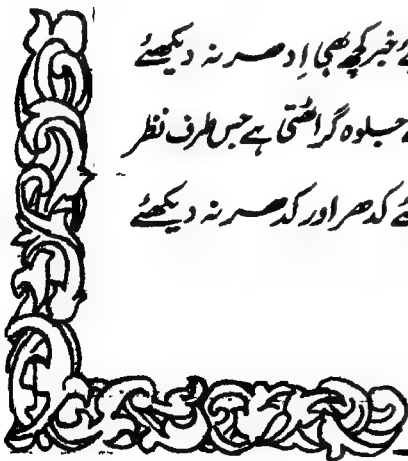 خبر کچھ بھی اِدھر نہ دیکھئے
جلوہ گر اٹھتی ہے جس طرف نظر
کدھر اور کدھر نہ دیکھئے